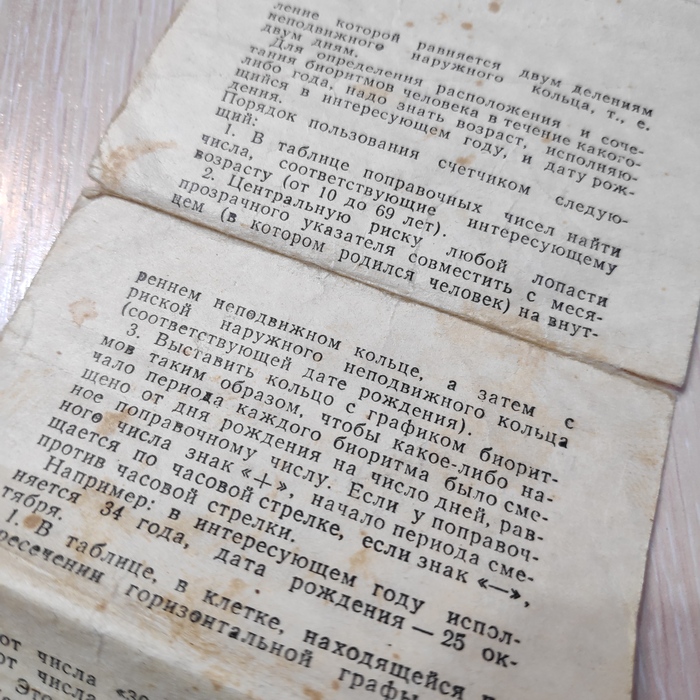 ление которой равняется двум делениям
неподвижного наружного кольца, т., е.
двум дням.
Для определения расположения и соче-
тания биоритмов человека в течение какого-
либо года, надо знать возраст, исполняю-
щийся в интересующем году, и дату рож-
дения.
Порядок пользования счетчиком следую-
щий:
1. В таблице поправочных чисел найти
числа, соответствующие интересующему
возрасту (от 10 до 69 лет).
2. Центральную риску любой лопасти
прозрачного указателя совместить с меся-
цем (в котором родился человек) на внут-
реннем неподвижном кольце, а затем с
риской наружного неподвижного кольца
(соответствующей дате рождения).
3. Выставить кольцо с графиком биорит-
мов таким образом, чтобы какое-либо на-
чало периода каждого биоритма было сме-
щено от дня рождения на число дней, рав-
ное поправочному числу. Если у поправоч-
ного числа знак «+», начало периода сме-
щается по часовой стрелке, если знак «—»,
против часовой стрелки.
Например: в интересующем году испол-
няется 34 года, дата рождения — 25 ок-
тября.
1. В таблице, в клетке, находящейся
ресечении горизонтальной графы
от числа «30
от числа
Это